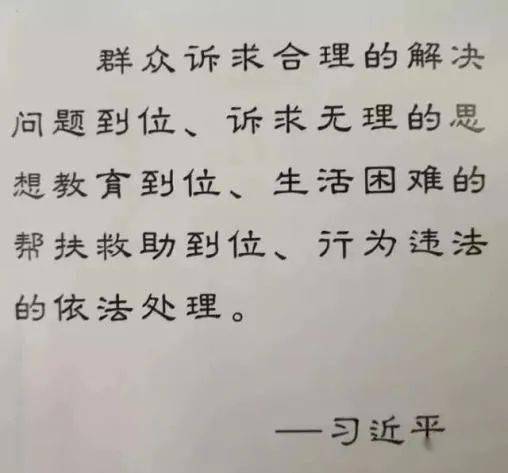 群众诉求合理的解决
问题到位、诉求无理的思
想教育到位、生活困难的
帮扶救助到位、行为违法
的依法处理。
—习近平